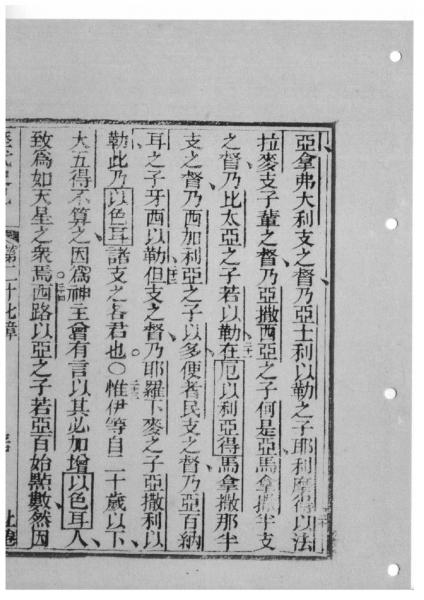 亞拿弗大利支之督乃亞士利以勒之子耶利摩得以法
拉麥支子輩之督乃亞撒西亞之子何是亞馬拿撒半支
之督乃比太亞之子若以勒在厄以利亞得馬拿撒那半
支之督乃西加利亞之子以多便者民支之督乃亞百納
耳之子牙西以勒但支之督乃耶羅下麥之子亞撒利以
勒此乃以色耳諸支之各君也○惟伊等自二十歲以下
大五得不算之因為神主會有言以其必加增以色耳人
致為如天星之衆焉西路以亞之子若亞百始點數然因
第二十七章